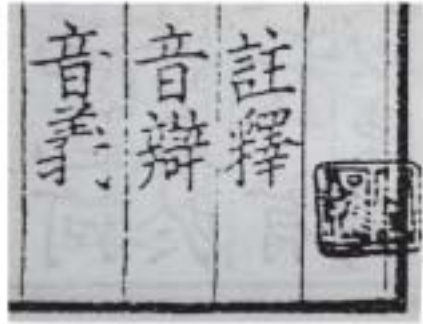 註釋
音辯
音義